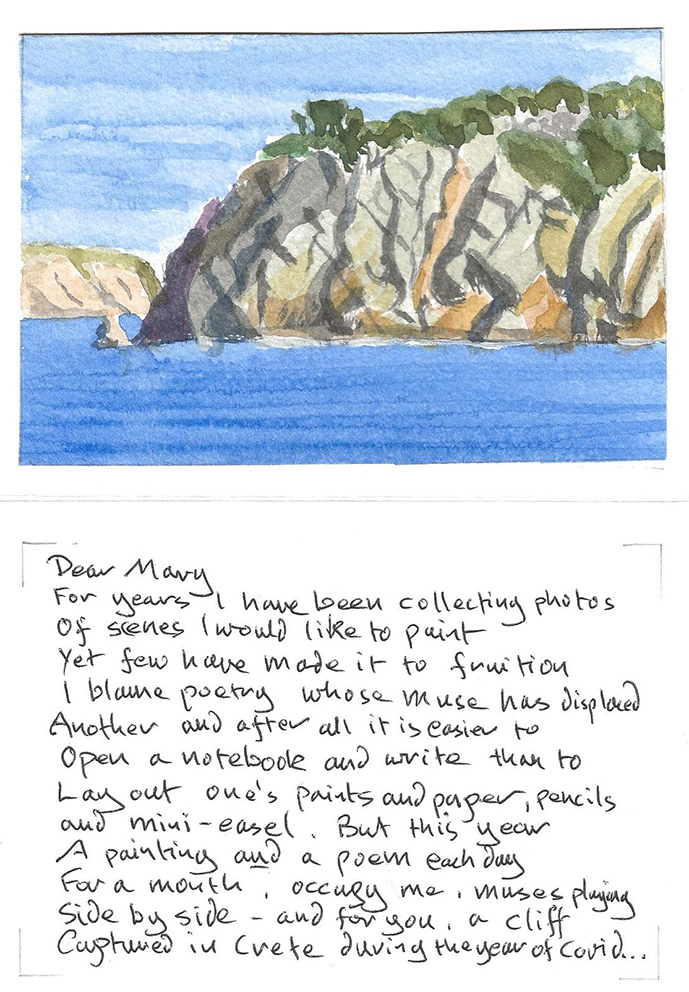 Dear Mary
For years I have been collecting photos
Of scenes I would like to paint
Yet few have made it to fruition
I blame poetry whose muse has displaced
Another and after all it is easier to
Open a notebook and write than to
Lay out one's paints and paper, pencils
and mini-easel. But this year
A painting and a poem each day
For a month, occupy me, muses playing
Side by side - and for you, a cliff
Captured in Crete during the year of Covid...